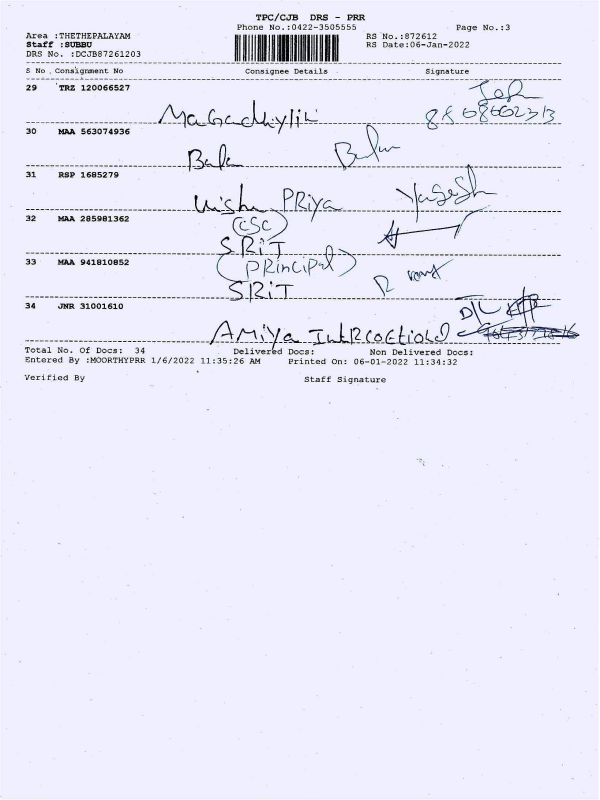 TPC/CJB DRS - PRR
Phone No.:0422-3505555 Page No.:3
Area :THETHEPALAYAM RS No.:872612
Staff :SUBBU RS Date:06-Jan-2022
DRS No. :DCJB87261203
S No. Consignment No Consignee Details Signature
29 TRZ 120066527
30 MAA 563074936
Bala
31 RSP 1685279
PRiya Yagesh
32 MAA 285981362
(CSC)
SRiT
33 MAA 941810852
(PRinciPal)
SRiT
34 JNR 31001610
AMiya
Total No. Of Docs: 34 Delivered Docs: Non Delivered Docs:
Entered By :MOORTHYPRR 1/6/2022 11:35:26 AM Printed On: 06-01-2022 11:34:32
Verified By Staff Signature